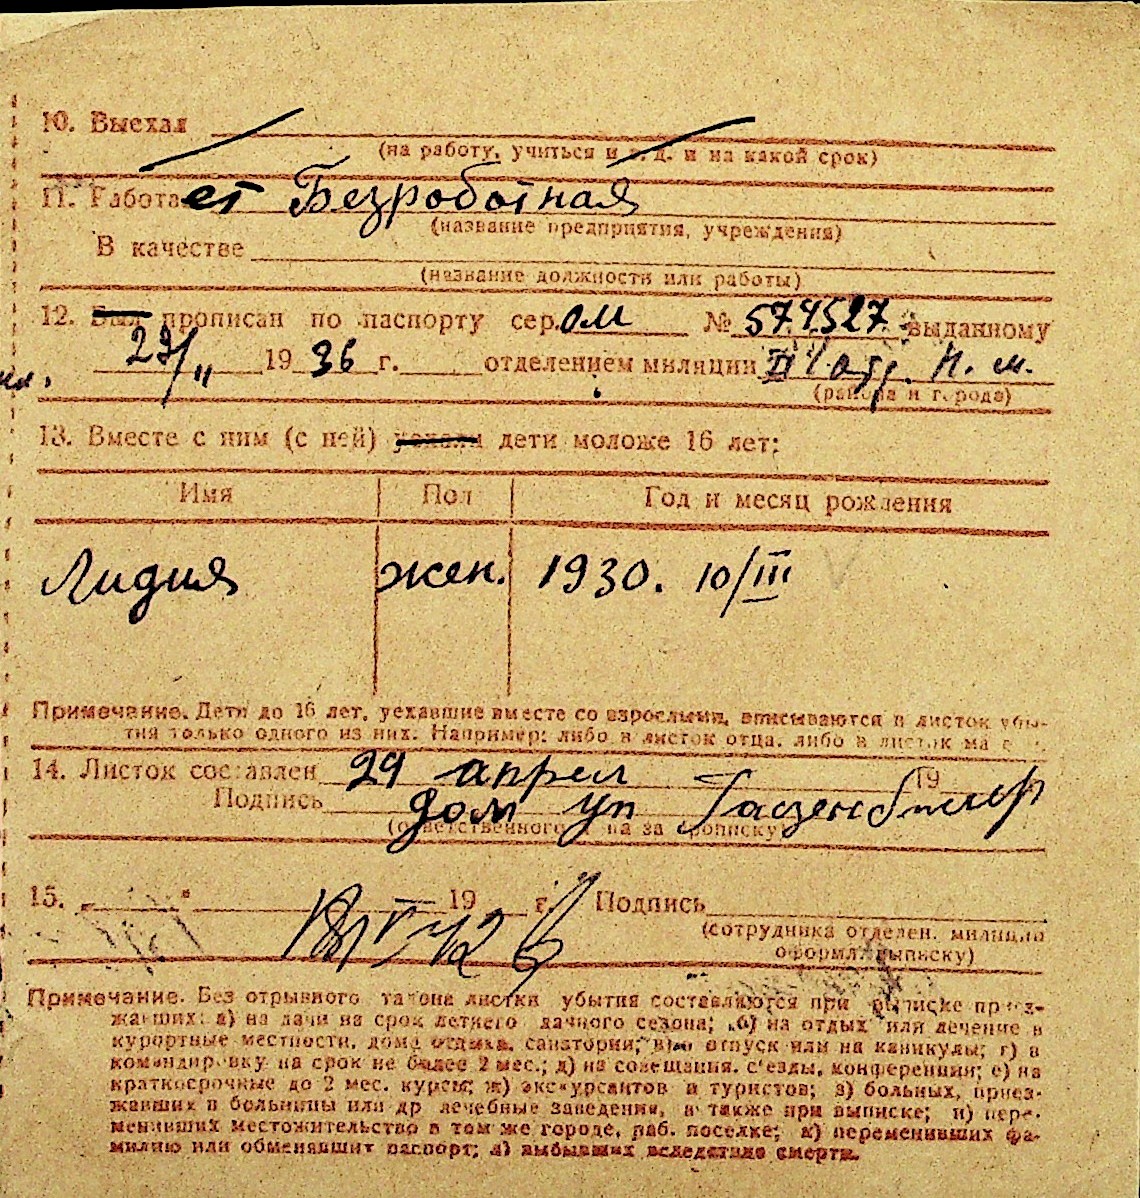 10. Выехал
(на работу, учиться и т. д. и на какой срок)
11. Работает Безроботная
(название предприятия, учреждения)
В качестве
(название должности или работы)
12. Был прописан по паспорту сер. ОМ № 574527 выданному
23/II 1936 г. отделением милиции III отд. Н. М.
(района и города)
13. Вместе с ним (с ней) уехали дети моложе 16 лет:
Имя Пол Год и месяц рождения
Лидия жен. 1930. 10/III
Примечание. Дети до 16 лет, уехавшие вместе со взрослыми, вписываются в листок убы-
тия только одного из них. Например: либо в листок отца, либо в листок
14. Листок составлен 29 апрел 19
Подпись Дом уп
(ответственного за прописку)
15. " " 19 г. Подпись
(сотрудника отделен. милиции
оформл. выписку)
Примечание. Без отрывного талона листки убытия составляются при выписке приез-
жавших: а) на дачи на срок летнего дачного сезона; б) на отдых или лечение в
курортные местности, дома отдыха, санатории; в) в отпуск или на каникулы; г) в
командировку на срок не более 2 мес.; д) на совещания, с'езды, конференции; е) на
краткосрочные до 2 мес. курсы; ж) экскурсантов и туристов; з) больных, приез-
жавших в больницы или др лечебные заведения, а также при выписке; и) пере-
менивших местожительство в том же городе, раб. поселке; к) переменивших фа-
милию или обменявших паспорт; л) выбывших вследствие смерти.